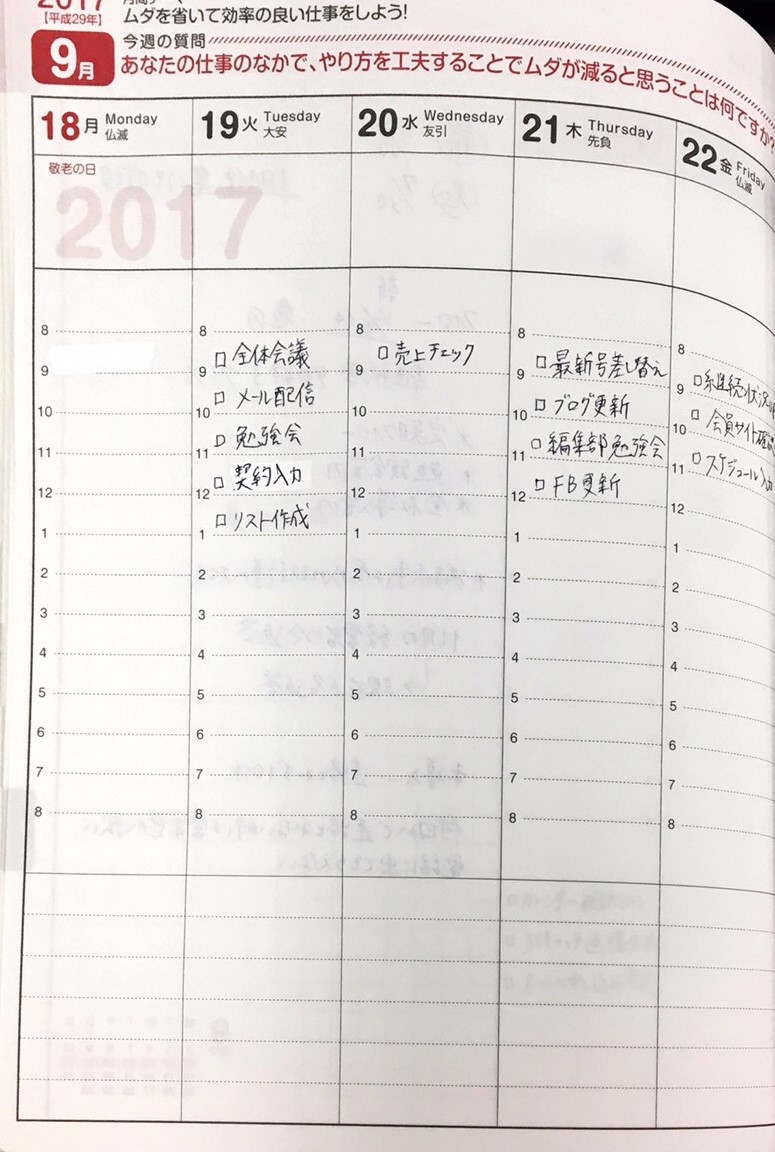 2017
【平成29年】
ムダを省いて効率の良い仕事をしよう!
9月
今週の質問
あなたの仕事のなかで、やり方を工夫することでムダが減ると思うことは何ですか?
18 月 Monday 仏滅
19 火 Tuesday 大安
20 水 Wednesday 友引
21 木 Thursday 先負
22 金 Friday 仏滅
敬老の日
2017
8
9
10
11
12
1
2
3
4
5
6
7
8
8
□ 全体会議
9
□ メール配信
10
□ 勉強会
11
□ 契約入力
12
□ リスト作成
1
2
3
4
5
6
7
8
8
□ 売上チェック
9
10
11
12
1
2
3
4
5
6
7
8
8
□ 最新号差し替え
9
□ ブログ更新
10
□ 編集部勉強会
11
□ FB更新
12
1
2
3
4
5
6
7
8
8
□ 継続状況
9
□ 会員サイト
10
□ スケジュール入力
11
12
1
2
3
4
5
6
7
8